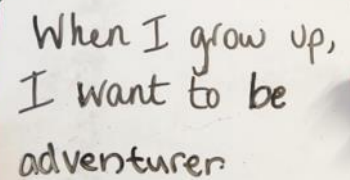 When I grow up,
I want to be
adventurer